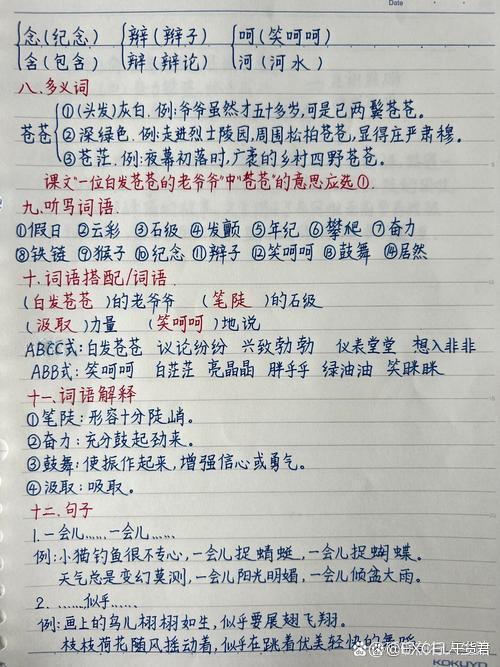 Date
念(纪念) 辫(辫子) 呵(笑呵呵)
含(包含) 辩(辩论) 河(河水)
八.多义词
①(头发)灰白.例:爷爷虽然才五十多岁,可是已两鬓苍苍。
苍苍 ②深绿色.例:走进烈士陵园,周围松柏苍苍,显得庄严肃穆。
③苍茫.例:夜幕初落时,广袤的乡村四野苍苍。
课文"一位白发苍苍的老爷爷"中"苍苍"的意思应选①.
九.听写词语.
①假日 ②云彩 ③石级 ④发颤 ⑤年纪 ⑥攀爬 ⑦奋力
⑧铁链 ⑨猴子 ⑩纪念 ⑪辫子 ⑫笑呵呵 ⑬鼓舞 ⑭居然
十.词语搭配/词语.
(白发苍苍)的老爷爷 (笔陡)的石级
(汲取)力量 (笑呵呵)地说
ABCC式:白发苍苍 议论纷纷 兴致勃勃 仪表堂堂 想入非非
ABB式:笑呵呵 白茫茫 亮晶晶 胖乎乎 绿油油 笑眯眯
十一.词语解释
①笔陡:形容十分陡峭。
②奋力:充分鼓起劲来。
③鼓舞:使振作起来,增强信心或勇气。
④汲取:吸取。
十二.句子
1.一会儿……一会儿……
例:小猫钓鱼很不专心,一会儿捉蜻蜓,一会儿捉蝴蝶。
天气总是变幻莫测,一会儿阳光明媚,一会儿倾盆大雨。
2.……似乎……
例:画上的鸟儿栩栩如生,似乎要展翅飞翔。
枝枝荷花随风摇动着,似乎在跳着优美轻快的舞蹈
KOKUYO